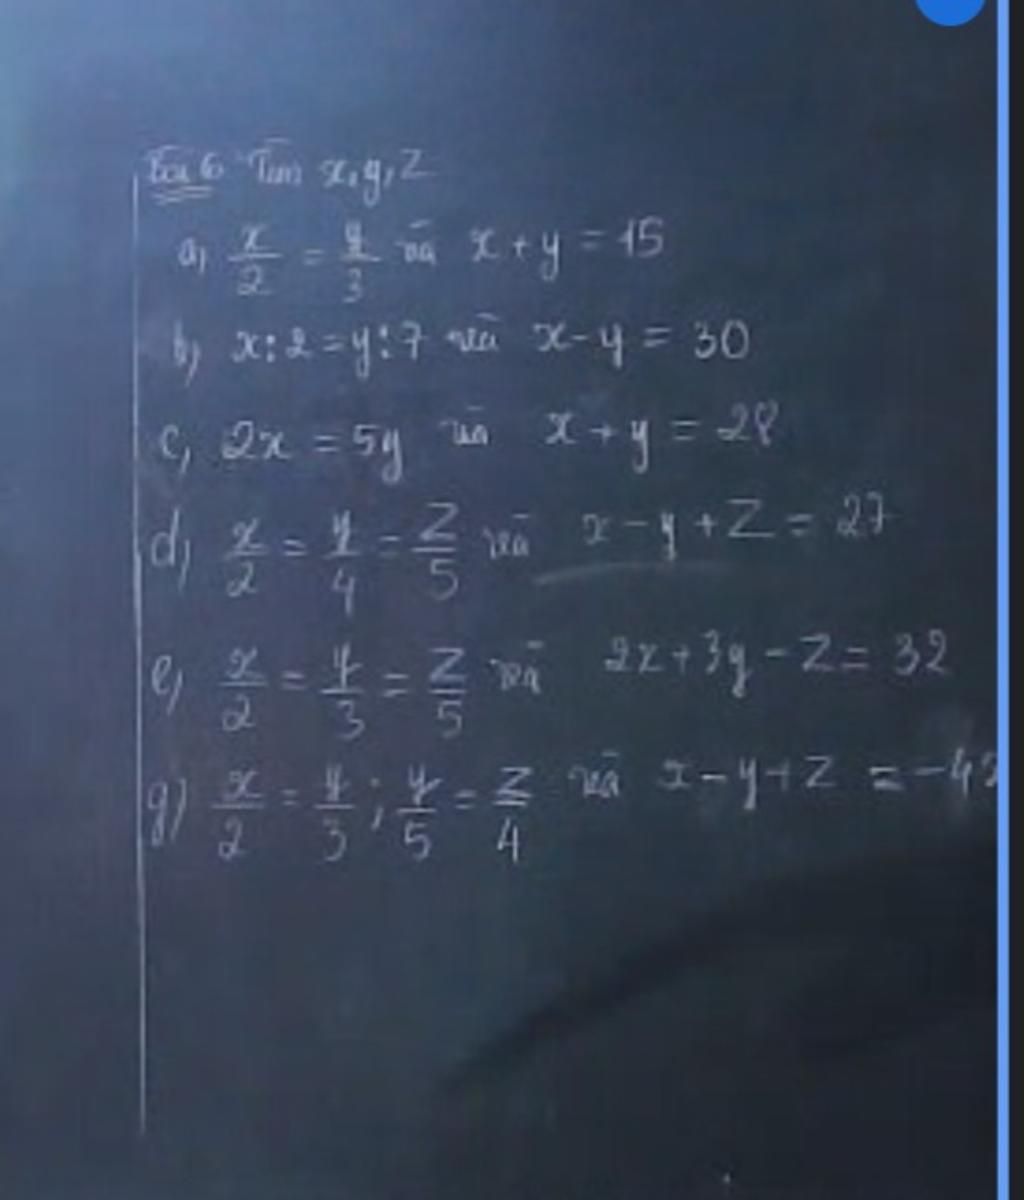 Bài 6 Tìm x, y, z
a) x/2 = y/3 và x + y = 15
b) x : 2 = y : 7 và x - y = 30
c) 2x = 5y và x + y = 28
d) x/2 = y/4 = z/5 và x - y + z = 27
e) x/2 = y/3 = z/5 và 2x + 3y - z = 32
g) x/2 = y/3 ; y/5 = z/4 và x - y + z =